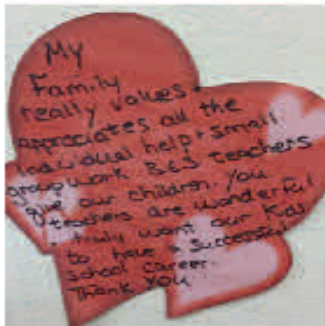 My
Family
really values +
appreciates all the
individual help + small
group work BES teachers
give our children. You
teachers are wonderful
+ truly want our kids
to have a successful
school career.
Thank You